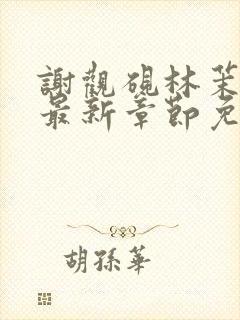 謝觀硯林茉
最新章節免
胡孫華